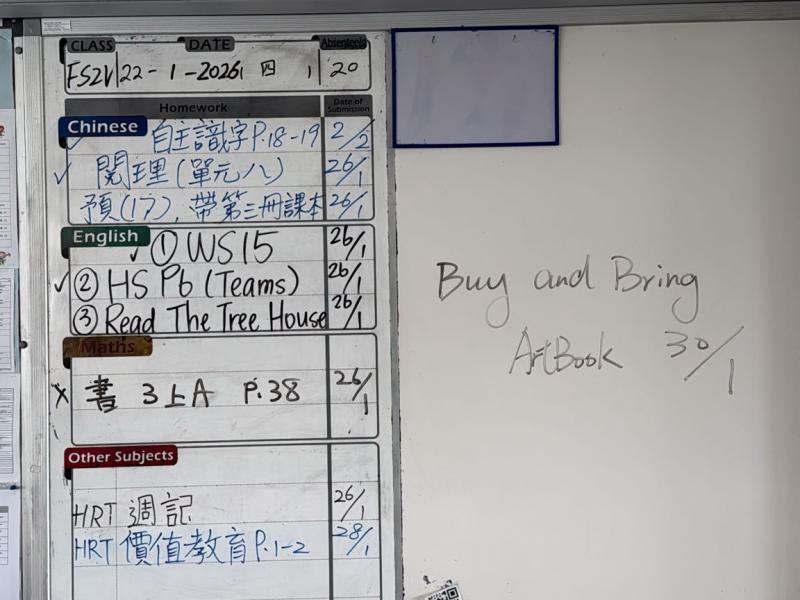 CLASS DATE Absentees
FS2V 22-1-2026 四 1 20
Homework Date of Submission
Chinese 自主識字P.18-19 2/2
閱理(單元八) 26/1
預(17),帶第三冊課本 26/1
English ① WS15 26/1
② HS P6 (Teams) 26/1
③ Read The Tree House 26/1
Maths
書 3上A P.38 26/1
Other Subjects
HRT 週記 26/1
HRT 價值教育P.1-2 28/1
Buy and Bring
ArtBook 30/1